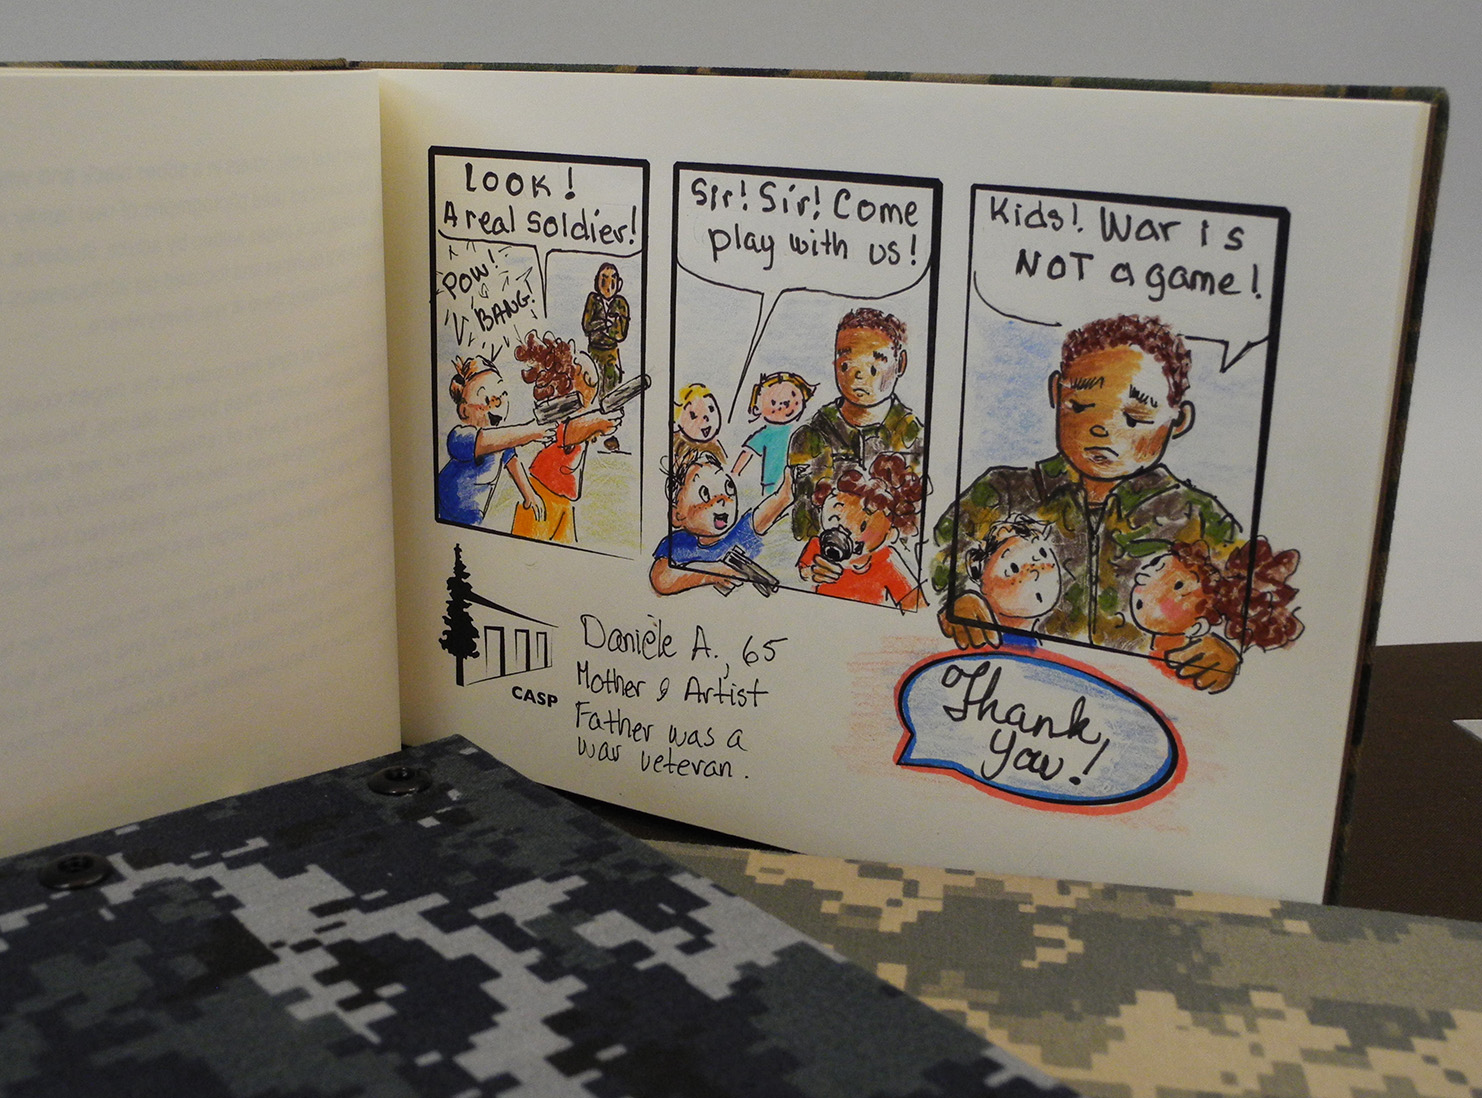 LOOK!
A real Soldier!
POW!
BANG!
Sir! Sir! Come
play with us!
Kids! War is
NOT a game!
CASP
Danièle A., 65
Mother & Artist
Father was a
war veteran.
Thank
you!